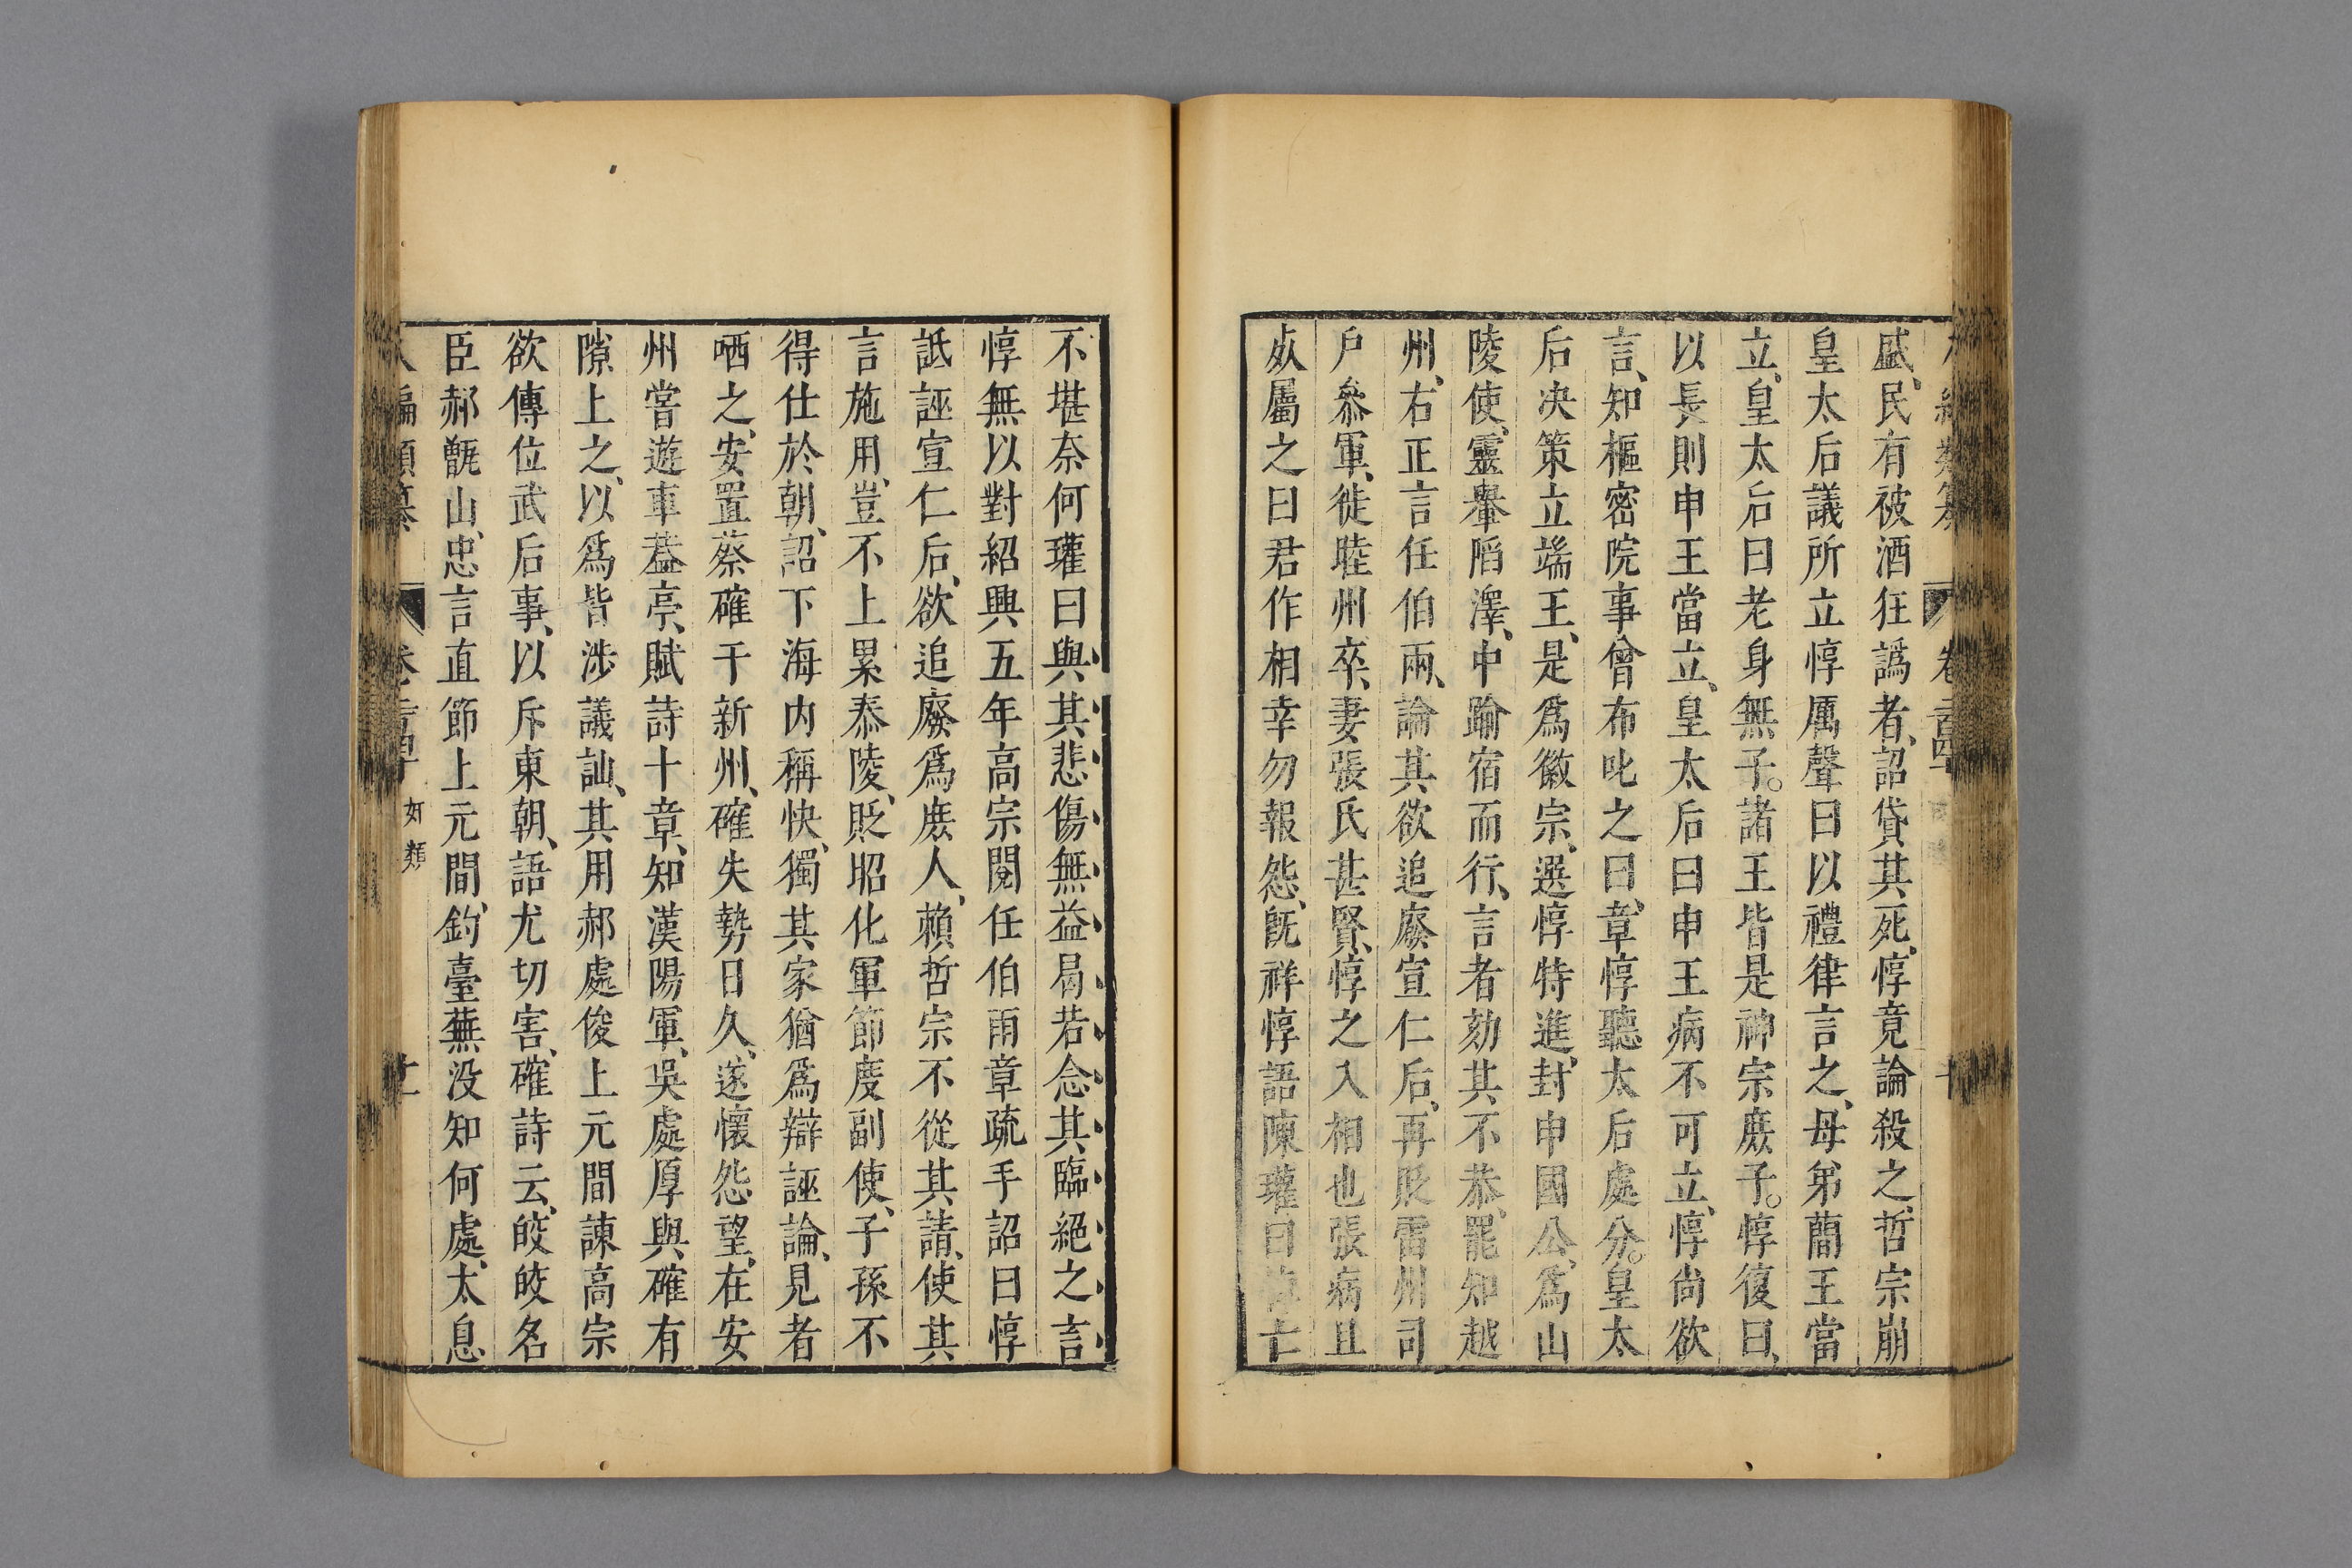 戚民有被酒狂譌者詔貸其死惇竟論殺之哲宗崩
皇太后議所立惇厲聲曰以禮律言之母弟簡王當
立皇太后曰老身無子諸王皆是神宗庶子惇復曰
以長則申王當立皇太后曰申王病不可立惇尚欲
言知樞密院事曾布叱之曰章惇聽太后處分皇太
后决策立端王是爲徽宗選惇特進封申國公爲山
陵使靈轝陷澤中踰宿而行言者劾其不恭罷知越
州右正言任伯雨論其欲追廢宣仁后再貶雷州司
戶叅軍徙睦州卒妻張氏甚賢惇之入相也張病且
死屬之曰君作相幸勿報怨旣祥惇語陳瓘曰悼亡
不堪奈何瓘曰與其悲傷無益曷若念其臨絕之言
惇無以對紹興五年高宗閱任伯雨章疏手詔曰惇
詆誣宣仁后欲追廢爲庶人賴哲宗不從其請使其
言施用豈不上累泰陵貶昭化軍節度副使子孫不
得仕於朝詔下海内稱快獨其家猶爲辯誣論見者
哂之安置蔡確于新州確失勢日久遂懷怨望在安
州嘗遊車葢亭賦詩十章知漢陽軍吳處厚與確有
隙上之以爲皆涉議訕其用郝處俊上元間諫高宗
欲傳位武后事以斥東朝語尤切害確詩云皎皎名
臣郝甑山忠言直節上元間釣臺蕪没知何處太息
奸類